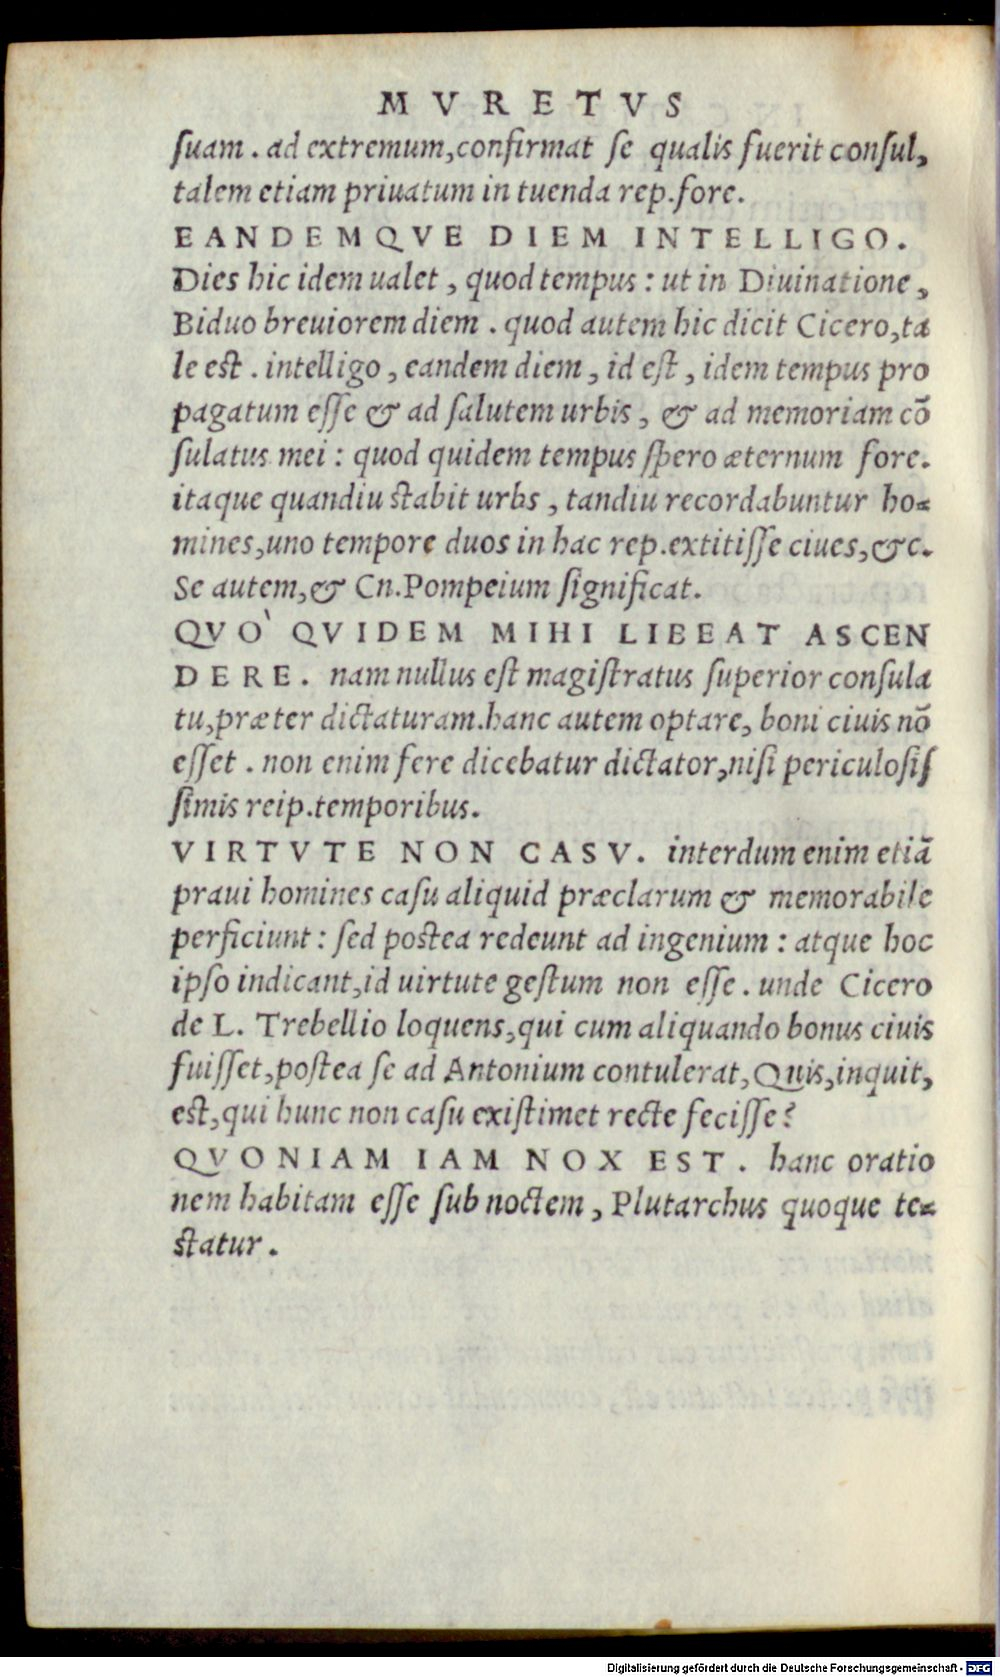 MVRETVS
suam. ad extremum, confirmat se qualis fuerit consul,
talem etiam priuatum in tuenda rep. fore.
EANDEMQVE DIEM INTELLIGO.
Dies hic idem ualet, quod tempus: ut in Diuinatione,
Biduo breuiorem diem. quod autem hic dicit Cicero, ta
le est. intelligo, eandem diem, id est, idem tempus pro
pagatum esse & ad salutem urbis, & ad memoriam cõ
sulatus mei: quod quidem tempus spero æternum fore.
itaque quandiu stabit urbs, tandiu recordabuntur ho-
mines, uno tempore duos in hac rep. extitisse ciues, &c.
Se autem, & Cn. Pompeium significat.
QVO` QVIDEM MIHI LIBEAT ASCEN
DERE. nam nullus est magistratus superior consula
tu, præter dictaturam. hanc autem optare, boni ciuis nõ
esset. non enim fere dicebatur dictator, nisi periculosis
simis reip. temporibus.
VIRTVTE NON CASV. interdum enim etiã
praui homines casu aliquid præclarum & memorabile
perficiunt: sed postea redeunt ad ingenium: atque hoc
ipso indicant, id uirtute gestum non esse. unde Cicero
de L. Trebellio loquens, qui cum aliquando bonus ciuis
fuisset, postea se ad Antonium contulerat, Quis, inquit,
est, qui hunc non casu existimet recte fecisse?
QVONIAM IAM NOX EST. hanc oratio
nem habitam esse sub noctem, Plutarchus quoque te-
statur.
Digitalisierung gefördert durch die Deutsche Forschungsgemeinschaft - DFG